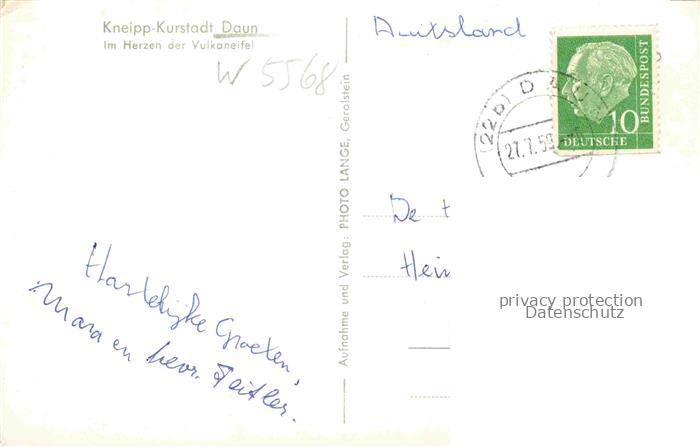 Kneipp-Kurstadt Daun
Im Herzen der Vulkaneifel
W 5568
Hartelijke Groeten,
Mara en hevr. Teitler.
Aufnahme und Verlag: PHOTO LANGE, Gerolstein
Duitsland
(22b) DAUN
27.7.59
10
DEUTSCHE
BUNDESPOST
De H
Hein
privacy protection
Datenschutz